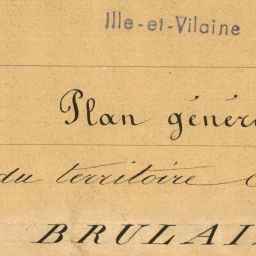 Ille-et-Vilaine
Plan génér
du territoire
BRULAI